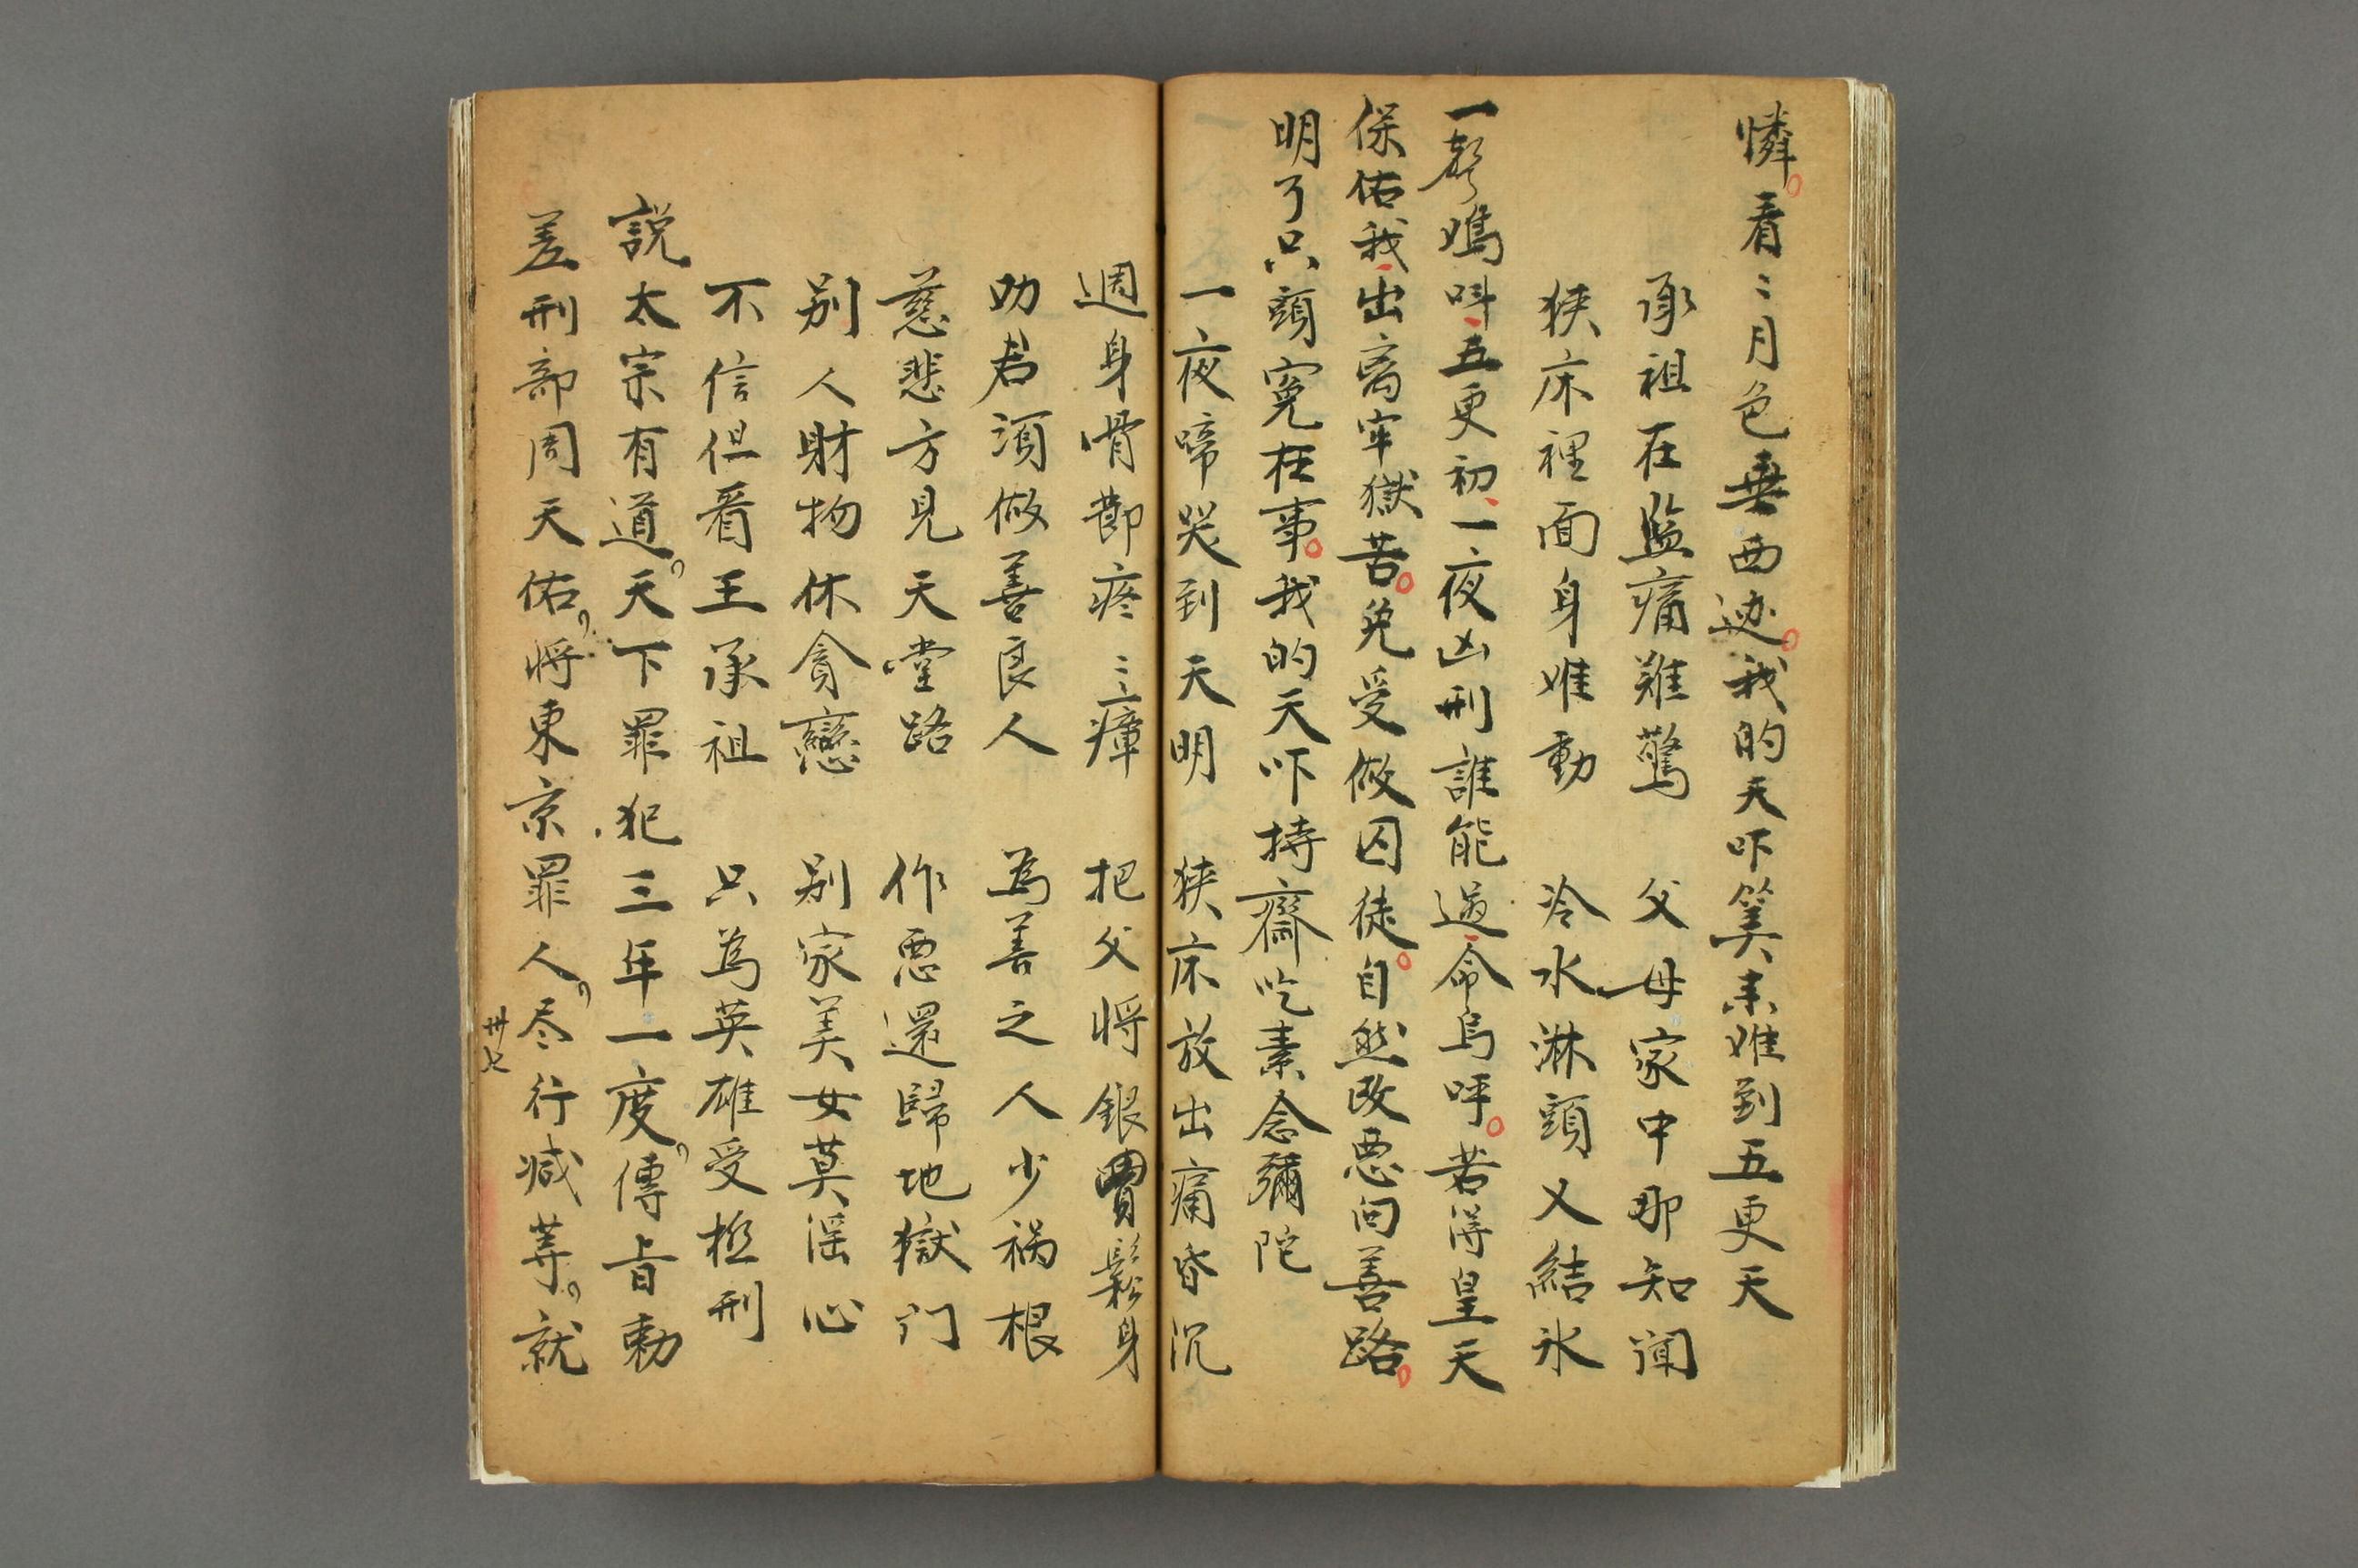 憐。看〻月色垂西边。我的天吓筭来难到五更天
承祖在监痛難驚　父母家中那知闻
狭床裡面身难動　冷水淋頭又結氷
一声鳴呌、五更初、一夜凶刑誰能过、命烏呼。若得皇天
保佑我、出离牢獄苦。免受做囚徒。自然改恶向善路。
明了只頭寃枉事。我的天吓持齋吃素念彌陀
一夜啼哭到天明　狭床放出痛昏沉
週身骨莭疼〻瘴　把父将銀買鬆身
劝君須做善良人　為善之人少祸根
慈悲方見天堂路　作恶還歸地獄门
别人財物休貪戀　别家美女莫滛心
不信但看王承祖　只為英雄受極刑
説太宗有道。天下罪犯三年一度。傳旨勅
差刑部周天佑。将東京罪人。尽行减䓁。就
卅七